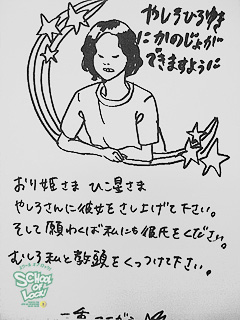 やしろひろゆき
にかのじょが
できますように
おり姫さま ひこ星さま
やしろさんに彼女をさし上げて下さい。
そして願わくば私にも彼氏をください。
むしろ私と教頭をくっつけて下さい。
SCHOOL OF LOCK!